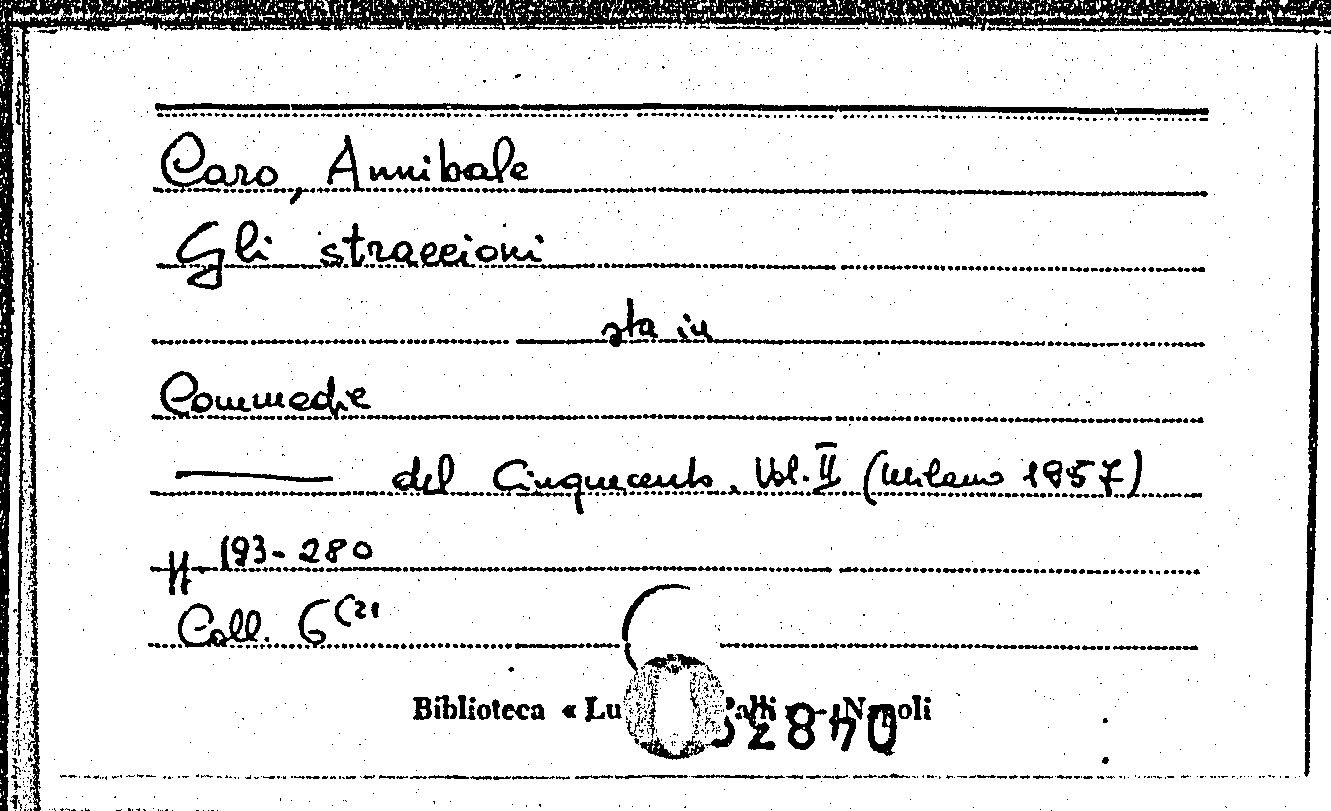 Caro, Annibale
Gli straccioni
sta in
Commedie
——— del Cinquecento. Vol. II (Milano 1957)
pp. 193-280
Coll. 6 (2)
Biblioteca « Lu - Napoli